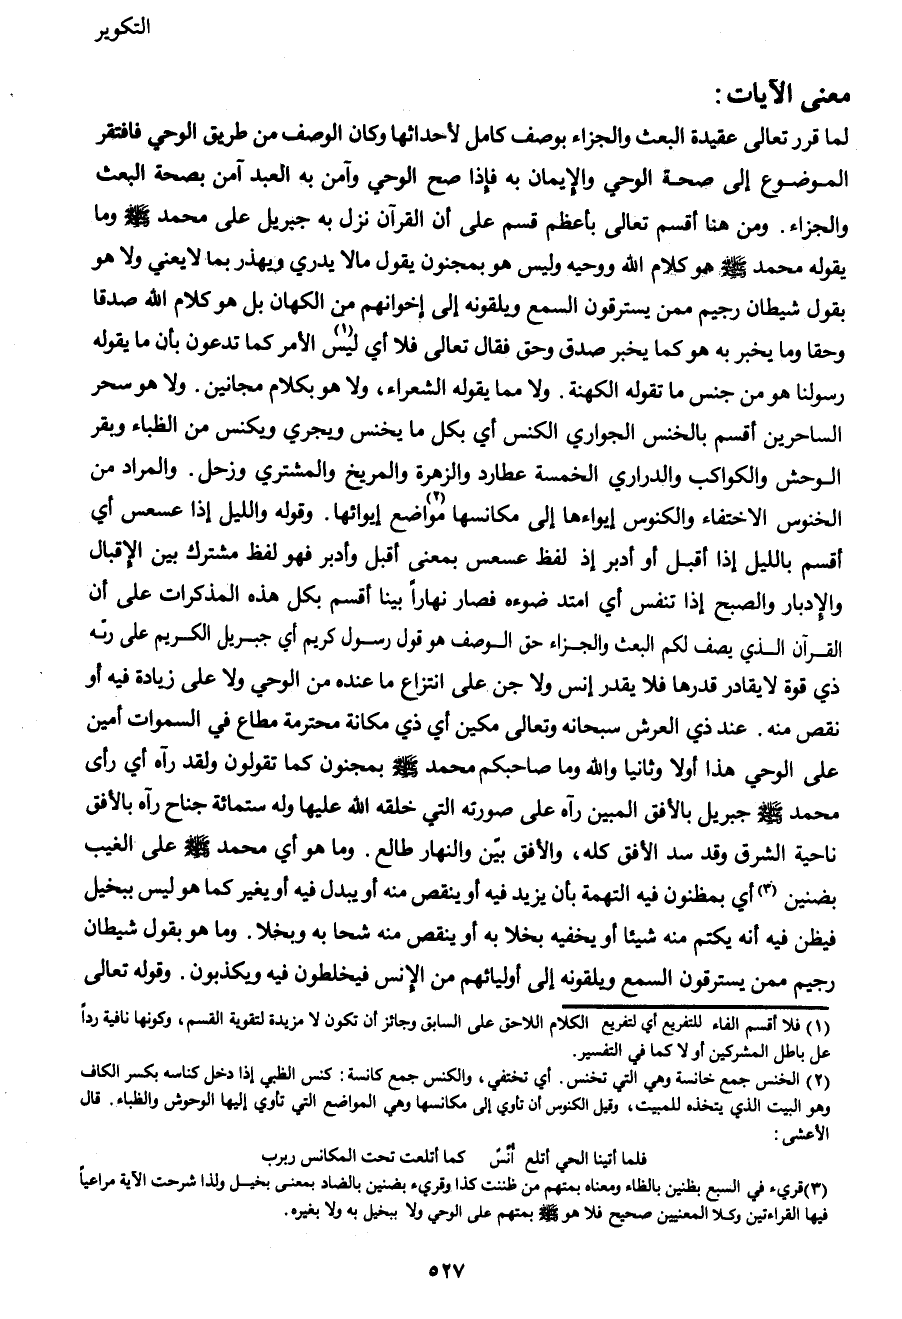 التكوير
معنى الآيات :
لما قرر تعالى عقيدة البعث والجزاء بوصف كامل لأحداثها وكان الوصف من طريق الوحي فافتقر
الموضوع إلى صحة الوحي والإيمان به فإذا صح الوحي وآمن به العبد آمن بصحة البعث
والجزاء . ومن هنا أقسم تعالى بأعظم قسم على أن القرآن نزل به جبريل على محمد ﷺ وما
يقوله محمد ﷺ هو كلام الله ووحيه وليس هو بمجنون يقول مالا يدري ويهذر بما لايعني ولا هو
بقول شيطان رجيم ممن يسترقون السمع ويلقونه إلى إخوانهم من الكهان بل هو كلام الله صدقا
وحقا وما يخبر به هو كما يخبر صدق وحق فقال تعالى فلا أي ليس(١) الأمر كما تدعون بأن ما يقوله
رسولنا هو من جنس ما تقوله الكهنة . ولا مما يقوله الشعراء ، ولا هو بكلام مجانين . ولا هو سحر
الساحرين أقسم بالخنس الجواري الكنس أي بكل ما يخنس ويجري ويكنس من الظباء وبقر
الوحش والكواكب والدراري الخمسة عطارد والزهرة والمريخ والمشتري وزحل . والمراد من
الخنوس الاختفاء والكنوس إيواءها إلى مكانسها مواضع(٢) إيوائها . وقوله والليل إذا عسعس أي
أقسم بالليل إذا أقبل أو أدبر إذ لفظ عسعس بمعنى أقبل وأدبر فهو لفظ مشترك بين الإقبال
والإدبار والصبح إذا تنفس أي امتد ضوءه فصار نهاراً بينا أقسم بكل هذه المذكرات على أن
القرآن الذي يصف لكم البعث والجزاء حق الوصف هو قول رسول كريم أي جبريل الكريم على ربّه
ذي قوة لايقادر قدرها فلا يقدر إنس ولا جن على انتزاع ما عنده من الوحي ولا على زيادة فيه أو
نقص منه . عند ذي العرش سبحانه وتعالى مكين أي ذي مكانة محترمة مطاع في السموات أمين
على الوحي هذا أولا وثانيا والله وما صاحبكم محمد ﷺ بمجنون كما تقولون ولقد رآه أي رأى
محمد ﷺ جبريل بالأفق المبين رآه على صورته التي خلقه الله عليها وله ستمائة جناح رآه بالأفق
ناحية الشرق وقد سد الأفق كله ، والأفق بيّن والنهار طالع . وما هو أي محمد ﷺ على الغيب
بضنين (٣) أي بمظنون فيه التهمة بأن يزيد فيه أو ينقص منه أو يبدل فيه أو يغير كما هو ليس ببخيل
فيظن فيه أنه يكتم منه شيئا أو يخفيه بخلا به أو ينقص منه شحا به وبخلا . وما هو بقول شيطان
رجيم ممن يسترقون السمع ويلقونه إلى أوليائهم من الإنس فيخلطون فيه ويكذبون . وقوله تعالى
(١) فلا أقسم الفاء للتفريع أي لتفريع الكلام اللاحق على السابق وجائز أن تكون لا مزيدة لتقوية القسم ، وكونها نافية رداً
عل باطل المشركين أو لا كما في التفسير.
(٢) الخنس جمع خانسة وهي التي تخنس . أي تختفي ، والكنس جمع كانسة : كنس الظبي إذا دخل كناسه بكسر الكاف
وهو البيت الذي يتخذه للمبيت ، وقيل الكنوس أن تاوي إلى مكانسها وهي المواضع التي تأوي إليها الوحوش والظباء . قال
الأعشى :
فلما أتينا الحي أتلع أُنّسٌ كما أتلعت تحت المكانس ربرب
(٣)قريء في السبع بظنين بالظاء ومعناه بمتهم من ظننت كذا وقريء بضنين بالضاد بمعنى بخيل ولذا شرحت الآية مراعياً
فيها القراءتين وكلا المعنيين صحيح فلا هو ﷺ بمتهم على الوحي ولا ببخيل به ولا بغيره .
٥٢٧